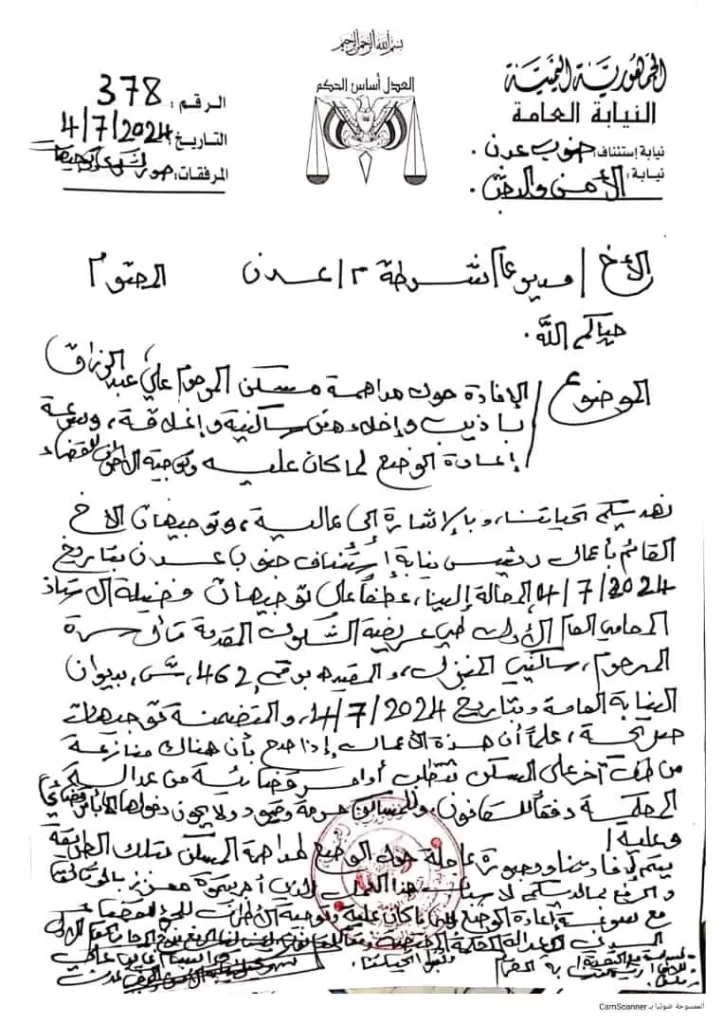 بسم الله الرحمن الرحيم
الجمهورية اليمنية
النيابة العامة
نيابة إستئناف: جنوب عدن.
نيابة: الأمن والبحث.
العدل أساس الحكم
الرقم: 378
التاريخ: 4/7/2024
المرفقات: صور شكوى وتوجيهات
الأخ / مدير عام شرطة م/ عدن المحترم
حياكم الله.
الموضوع / الإفادة حول مداهمة مسكن المرحوم علي عبدالرزاق
باذيب وإخلاءه من ساكنيه وإغلاقه، وسرعة
إعادة الوضع لما كان عليه وتوجيه الأطراف للقضاء
نهديكم تحياتنا، وبالإشارة الى عاليه، وتوجيهات الأخ
القائم بأعمال رئيس نيابة إستئناف جنوب عدن بتاريخ
4/7/2024 المحالة إلينا، عطفاً على توجيهات فضيلة الأستاذ
المحامي العام الأول طي عريضة الشكوى المقدمة من أسرة
المرحوم، ساكني المنزل، والمقيده برقم 462، ش، بديوان
النيابة العامة وبتاريخ 4/7/2024، والمتضمنة توجيهات
صريحة، علماً أن هذه الأعمال إذا صح بأن هناك منازعة
من طرف آخر على السكن تتطلب أوامر قضائية من عدالة
المحكمة وفقاً للقانون، وللمساكن حرمة ولا يجوز دخولها إلا بأمر قضائي
وعليه /
يتم إفادتنا وبصورة عاجلة حول الوضع لمداهمة المسكن بتلك الطريقة
والرفع بما لديكم لا سيما هذا العمل
مع سرعة إعادة الوضع إلى ما كان عليه وتوجيه الأطراف للجوء للقضاء
الممسوحة ضوئيا بـ CamScanner